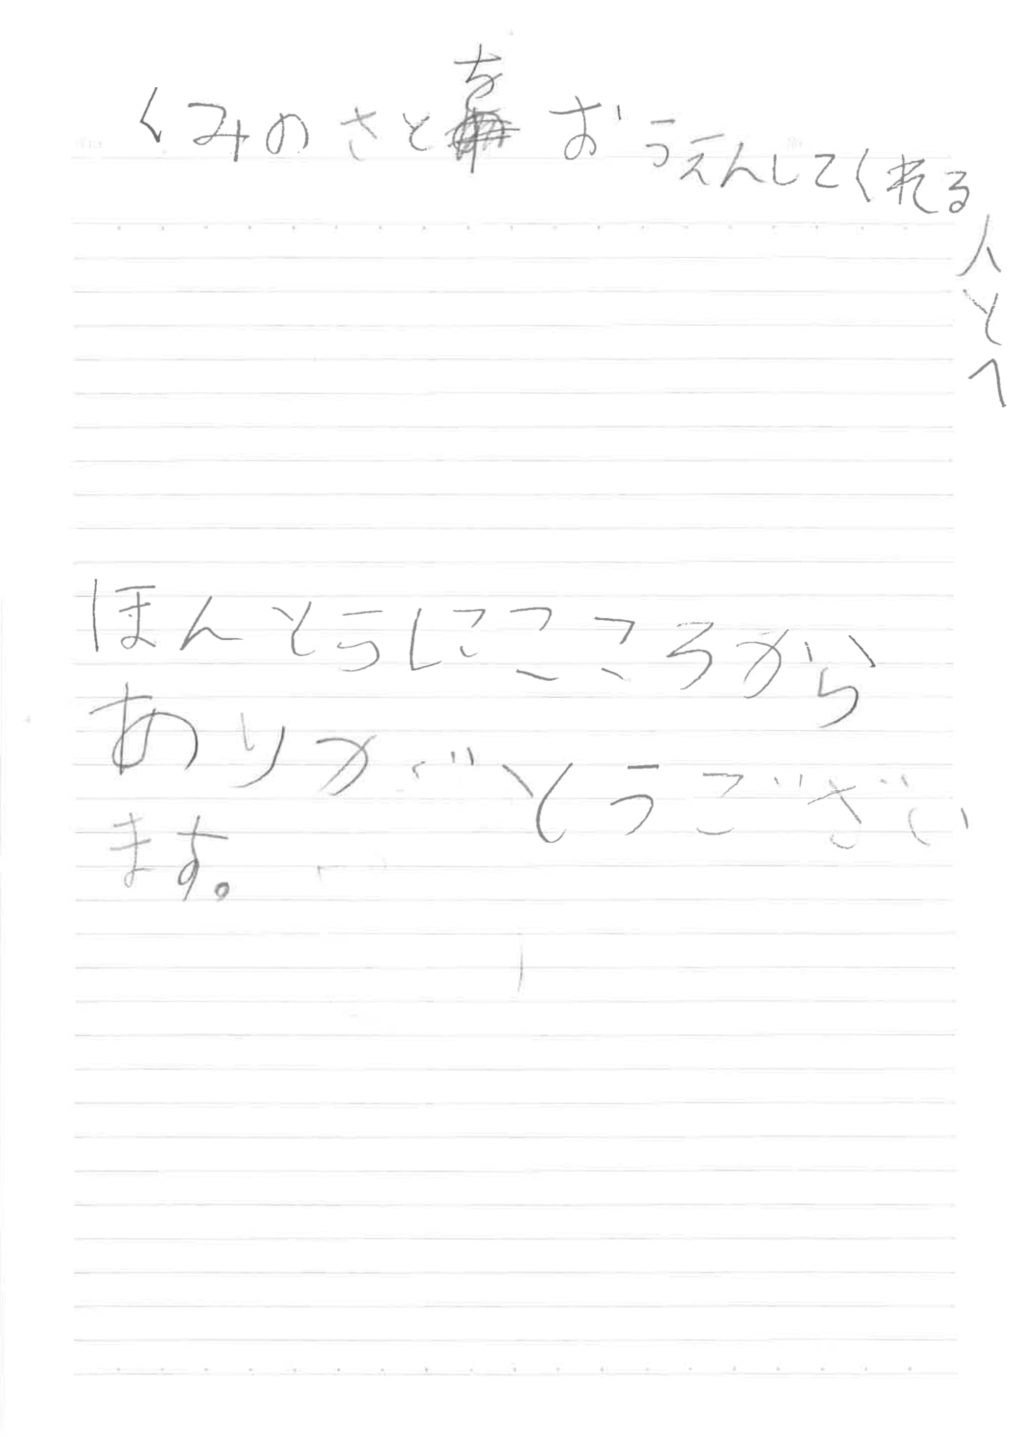 くみのさとをおうえんしてくれる人とへ
ほんとうにこころから
ありがとうござい
ます。